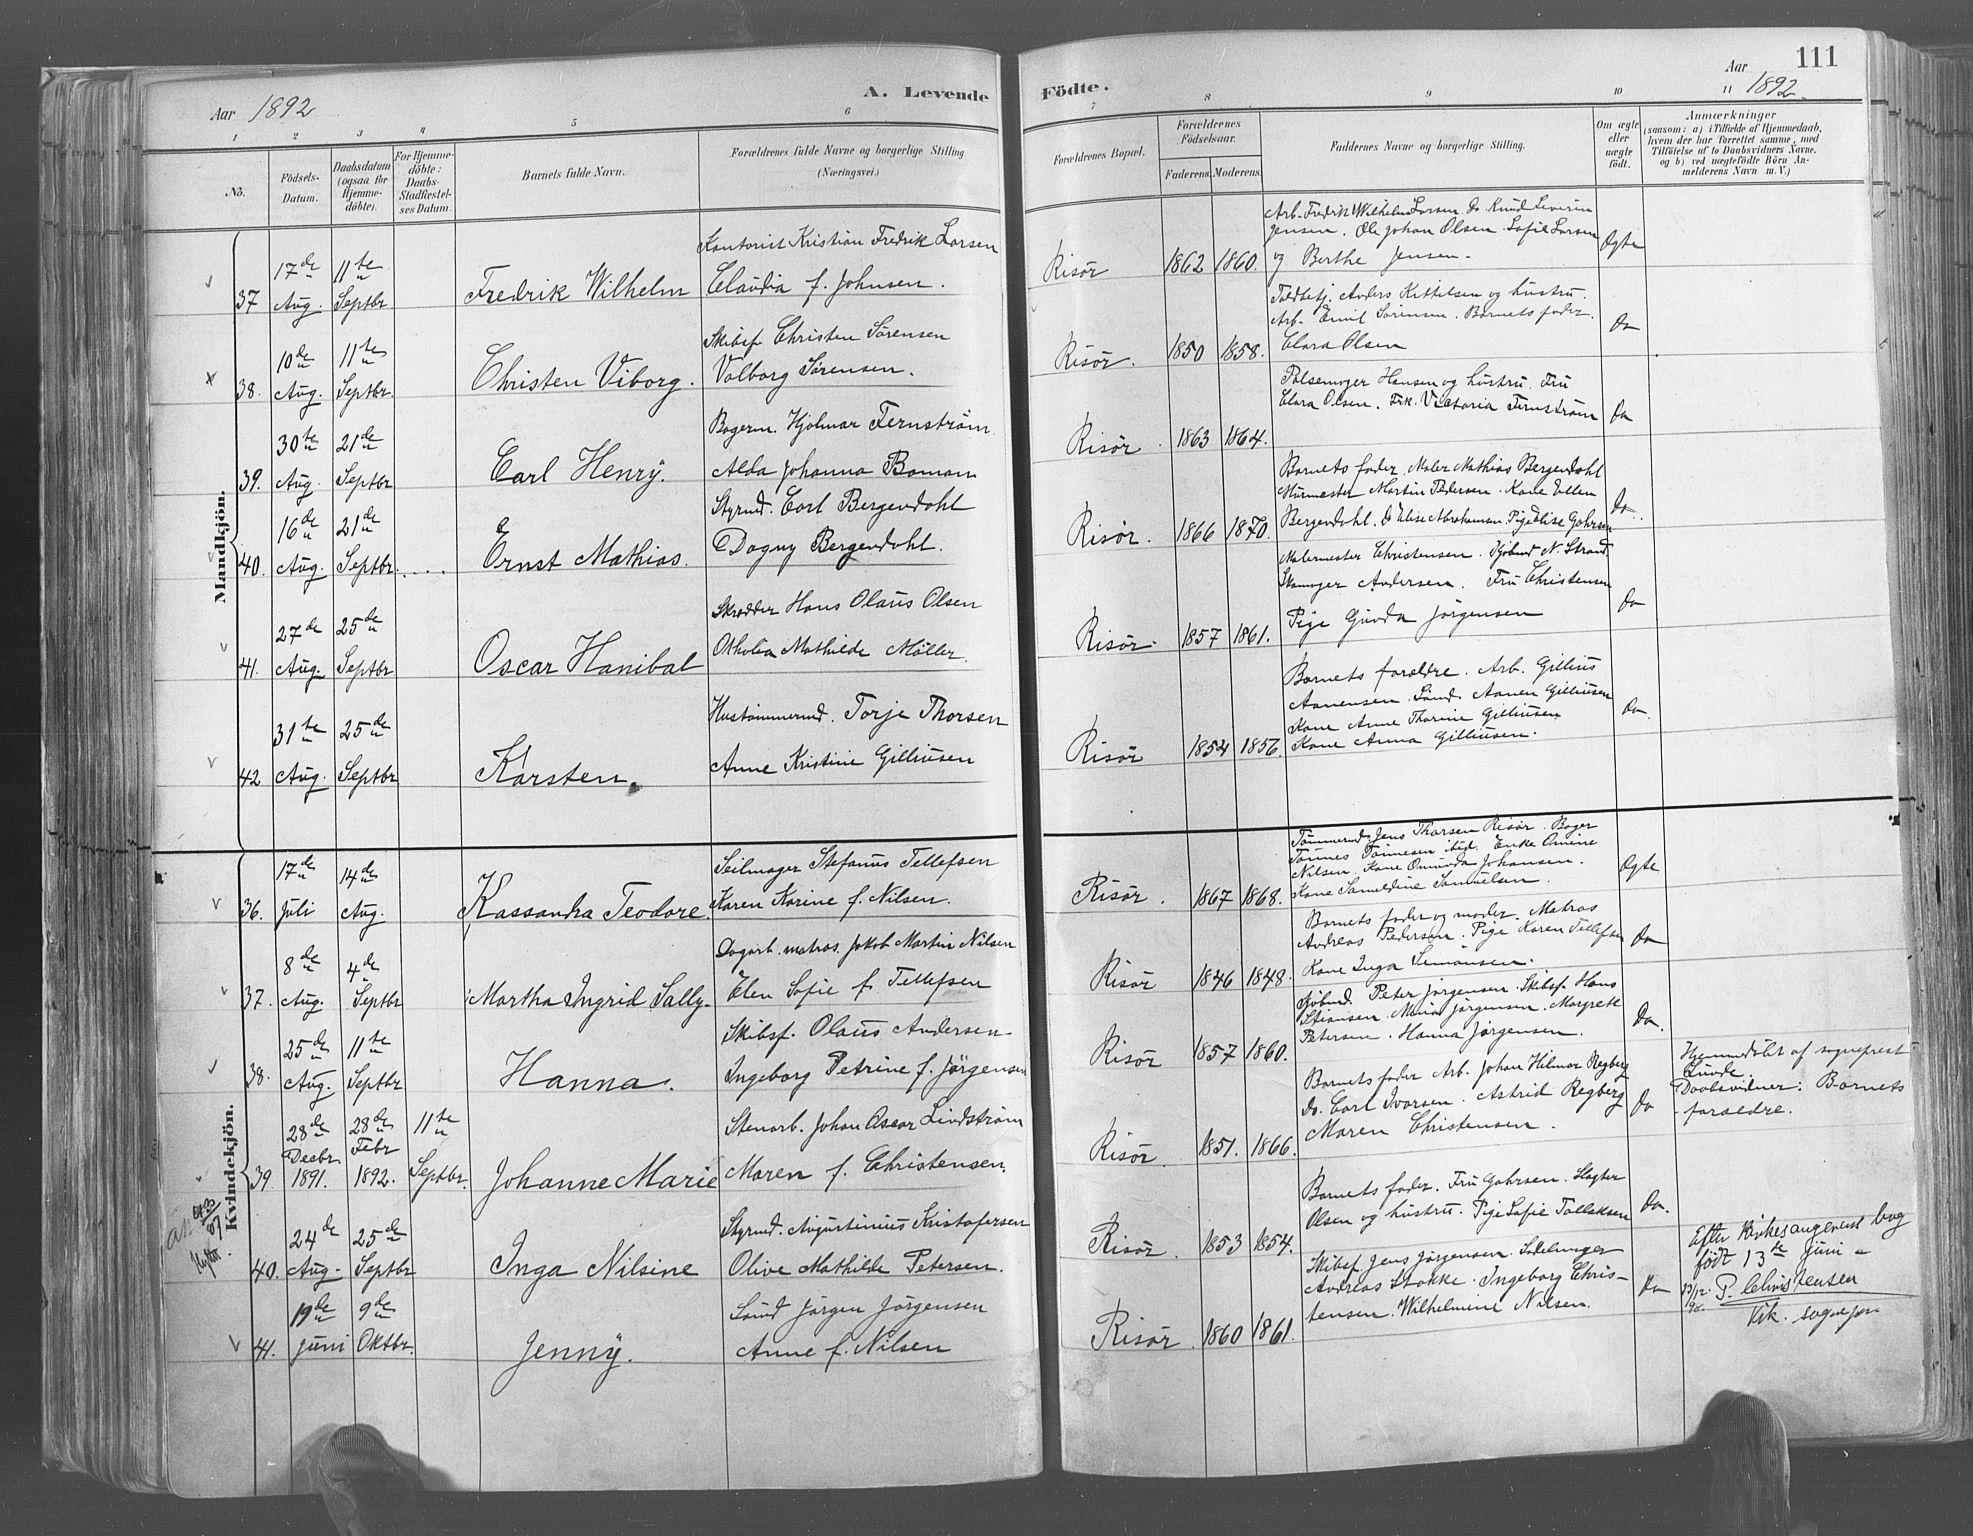 111
Aar 1892
A. Levende Fødte.
Aar 1892.
1 2 3 4 5 6 7 8 9 10 11
No.
Fødsels-Datum.
Daabsdatum (ogsaa for Hjemmedöbte).
For Hjemmedöbte: Daabs-Stadfestelses Datum.
Barnets fulde Navn.
Forældrenes fulde Navne og borgerlige Stilling
(Næringsvei.)
Forældrenes Bopæl.
Forældrenes Födselsaar.
Faderens. Moderens.
Faddernes Navne og borgerlige Stilling.
Om ægte eller uægte födt.
Anmærkninger
(saasom: a) i Tilfælde af Hjemmedaab, hvem der har forrettet samme, med Tilföielse af to Daabsvidners Navne, og b) ved uægtefödte Börn Anmelderens Navn m. V.)
Mandkjön.
37 17de Aug. 11te Septbr Fredrik Wilhelm
Kontorist Kristian Fredrik Larsen
Claudia f. Johnsen.
Risör 1862 1860.
Arb. Fredrik Wilhelm Larsen Do Knud Severin
Jensen. Ole Johan Olsen. Sofie Larsen
og Berthe Jensen.
Ægte
38. 10de Aug. 11te Septbr. Christen Viborg.
Skibsf Christen Sørensen
Valborg Sørensen.
Risör. 1850 1858.
Toldbetj. Anders Kittelsen og hustru.
Arb. Emil Sørensen. Barnets fader.
Clara Olsen
Do
39. 30te Aug. 21de Septbr Carl Henry.
Bagerm. Hjalmar Fernström
Alda Johanna Boman
Risör. 1863 1864.
Pølsemager Hansen og hustru. Fru
Clara Olsen. Frk. Victoria Fernström
Do
40. 16de Aug. 21de Septbr. Ernst Mathias.
Styrmd. Carl Bergendahl
Dagny Bergendahl.
Risör. 1866 1870.
Barnets fader. Maler Mathias Bergendahl
Murmester Martin Pedersen. Kone Ellen
Bergendahl. Do Elise Abrahamsen Pige Elise Gahrsen
Do.
41. 27de Aug. 25de Septbr Oscar Hanibal
Skrædder Hans Olaus Olsen
Mathilde Møller.
Risör. 1857 1861.
Malermester Christensen. Kjöbmd N. Strand
Skomager Andersen. Fru Christensen
Pige Gunda Jørgensen
Do
42 31te Aug. 25de Septbr Karsten.
Hustømmermd. Torje Thorsen
Anne Kristine Gilliusen
Risör 1854 1856.
Barnets forældre. Arb. Gillius
Aanensen. Sömd. Aanen Gilliusen
Kone Anne Thorine Gilliusen
Kone Anna Gilliusen.
Do.
Kvindekjön.
36. 17de Juli 14de Aug. Kassandra Teodore.
Seilmager Stefanus Tellefsen
Karen Karine f. Nilsen.
Risör. 1867 1868.
Tømmermd. Jens Thorsen Risør. Bager
Tønnes Tønnesen ibid. Enke Amine
Nilsen. Kone Johansen.
Kone Samuelsen.
Ægte
37. 8de Aug. 4de Septbr Martha Ingrid Sally.
Dagarb. matros. Jakob Martin Nilsen
Elen Sofie f. Tellefsen
Risör 1846 1848.
Barnets fader og moder. Matros
Andreas Pedersen. Pige Karen Tellefsen
Kone Inga Simonsen.
Do
38. 25de Aug. 11te Septbr Hanna.
Skibsf. Olaus Andersen
Ingeborg Petrine f. Jørgensen
Risör 1857 1860.
Kjöbmd. Peter Jørgensen. Skibsf. Hans
Stiansen. Maria Jørgensen. Margrete
Petersen. Hanna Jørgensen.
Do.
39. 28de Decbr 1891. 28de Febr 1892. 11te Septbr. Johanne Marie
Stenarb. Johan Oscar Lindstrøm
Maren f. Christensen.
Risör. 1851. 1866.
Barnets fader Arb. Johan Hilmar Regberg
Do. Carl Ivarsen. Astrid Regberg
Maren Christensen.
Do
Hjemmdöbt af sogneprest
Lunde.
Daabsvidner: Barnets
forældre.
40. 24de Aug. 25de Septbr Inga Nilsine
Styrmd. Augustinius Kristofersen
Olive Mathilde Petersen.
Risör. 1853 1854.
Barnets fader. Fru Gahrsen. Slagter
Olsen og hustru. Pige Sofie Tallaksen
Do.
41. 19de Juni 9de Oktbr. Jenny.
Sömd Jørgen Jørgensen
Anne f. Nilsen
Risör. 1860 1861.
Skibsf Jens Jørgensen Sadelmager
Andreas Stokke. Ingeborg Chris-
tensen. Wilhelmine Nilsen.
Do
Efter Kirkesangerens bog
født 13de Juni
13/12 98. P. Christensen
Vik. sognepr